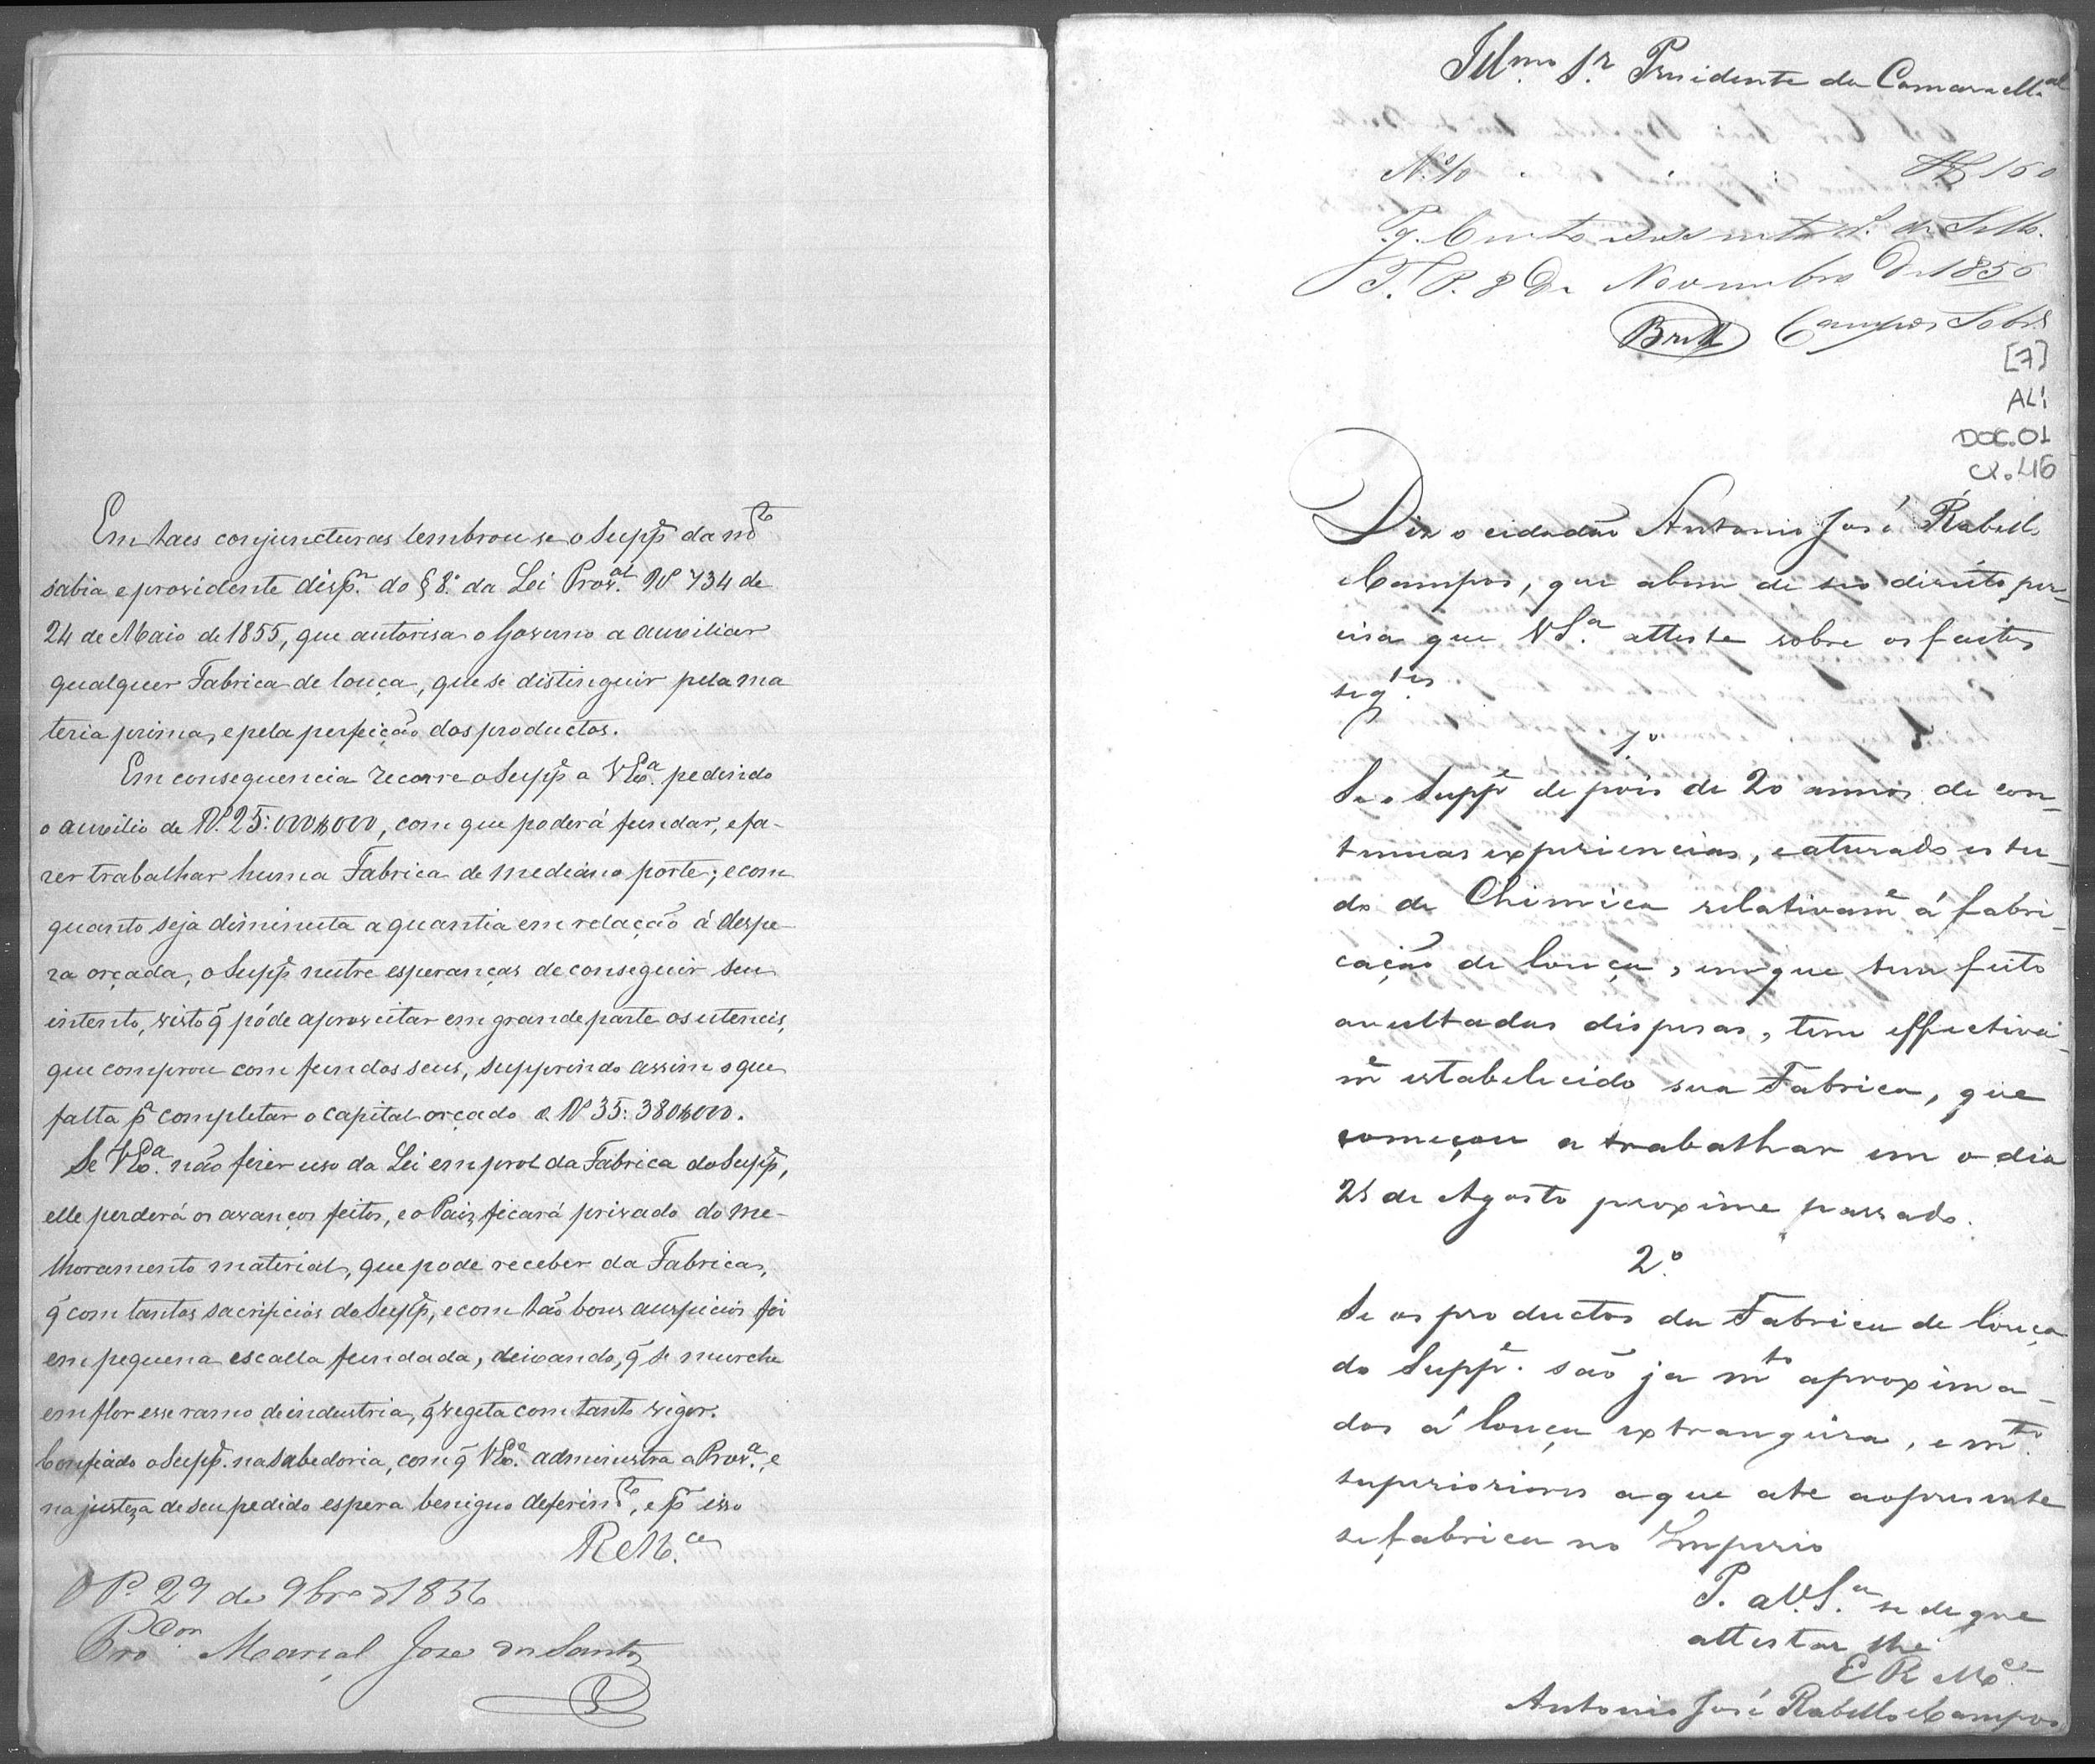 Em taes conjuncturas lembrou se o Supp.e da m.to
sabia e providente disp.m do § 8.º da Lei Prov.al Nº 734 de
24 de Maio de 1855, que autorisa o Governo a auxiliar
qualquer Fabrica de louça, que se distinguir pela ma
teria prima, e pela perfeição dos productos.
Em consequencia recorre o Supp.e a V Ex.a pedindo
o auxilio de R.s 25:000$000, com que poderá fundar, e fa-
zer trabalhar huma Fabrica de mediano porte; e com
quanto seja diminuta a quantia em relação á despe
za orçada, o Supp.e nutre esperanças de conseguir seu
intento, visto q̃ póde aproveitar em grande parte os utencis,
que comprou com fundos seus, supprindo assim o que
falta p.a completar o capital orçado a R.s 35:380$000.
Se V Ex.a não fizer uso da Lei em prol da Fabrica do Supp.e,
elle perderá os avanços feitos, e o Paiz ficará privado do me-
lhoramento material, que pode receber da Fabrica,
q̃ com tantos sacrificios do Supp.e, e com tão bons auspicios foi
em pequena escalla fundada, deixando, q̃ se murche
em flor esse ramo de industria, q̃ vegeta com tanto vigor.
Confiado o Supp.e na sabedoria, com q̃ V Ex.a administra a Prov.a, e
na justeza de seu pedido espera benigno deferim.to, e p.r isso
R M.ce
O P. 29 de 9br.o d 1856
Pro.dor Marçal Jose dos Santos
Ill.mo S.r Presidente da Camara M.al
N.º 10 160
Pg. Cento e sessenta r.s de Sello.
O. P. 8 de Novembro de 1856
Brett Campos Sobr.o
[7]
AL1
DOC. 01
CX. 46
Diz o cidadão Antonio José Rabello
Campos, que abem de seo direito pre-
cisa que V S.a atteste sobre os factos
seg.tes
1.º
Se o Supp.e depois de 20 annos de con-
tinuas experiencias, e aturado estu-
do de Chimica relativam.e á fabri-
cação de louça, em que tem feito
avultadas dispesas, tem effectiva-
m.e estabelecido sua Fabrica, que
começou a trabalhar em o dia
25 de Agosto proximo passado.
2.º
Se os productos da Fabrica de louça
do Supp.e são ja m.to aproxima-
dos á louça extrangeira, e m.to
superioriores a que ate ao presente
se fabrica no Imperio
P. a V. S.a se digne
attestar lhe
E R M.ce
Antonio José Rabello Campos